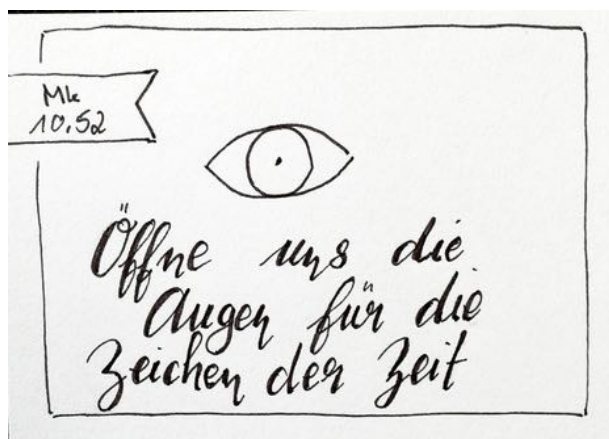 Mk
10,52
Öffne uns die
Augen für die
Zeichen der Zeit